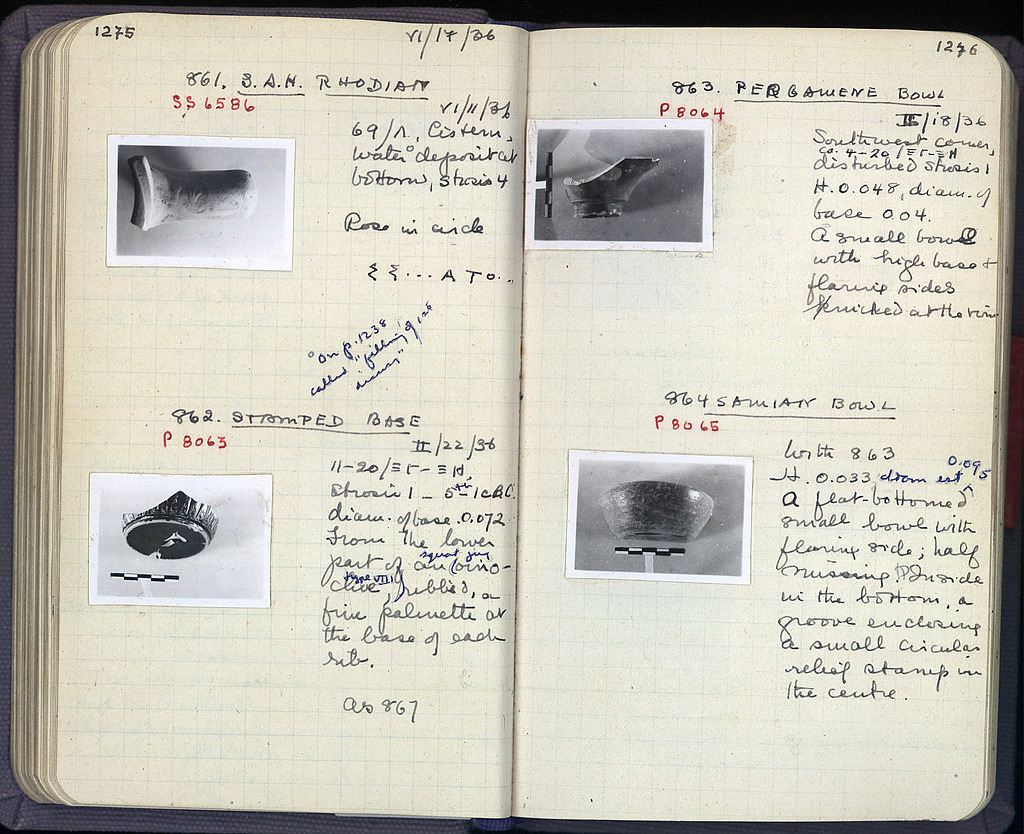 1275
VI/17/36
861. S.A.H. RHODIAN
SS 6586
VI/11/36
69/Λ, Cistern,
water° deposit at
bottom, Strosis 4
Rose in circle
Ξ Ξ ... A T O ..
°On p. 1238
called "filling of
862. STAMPED BASE
P 8063
II/22/36
11-20/ΞΓ-ΞΗ,
Strosis 1 – 5th – 1c B.C.
diam. of base 0.072
From the lower
part of an (oino-
squat jug
choe, ribbed, a
type VII
fine palmette at
the base of each
rib.
as 867
1276
863. PERGAMENE BOWL
P 8064
II/18/36
Southwest corner,
ca. 4-20/ΞΓ-ΞΗ
disturbed Strosis 1
H. 0.048, diam. of
base 0.04.
A small bowl
with high base +
flaring sides
at the rim
864 SAMIAN BOWL
P 8065
With 863
H. 0.033 diam est 0.095
A flat-bottomed
small bowl with
flaring side; half
missing. Inside
in the bottom, a
groove enclosing
a small circular
relief stamp in
the centre.